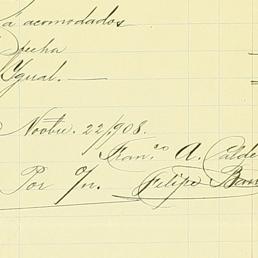 la acomodados
Igual.
Novbre. 22/908.
Fran.co A. Calde
Por o/n. Felipe